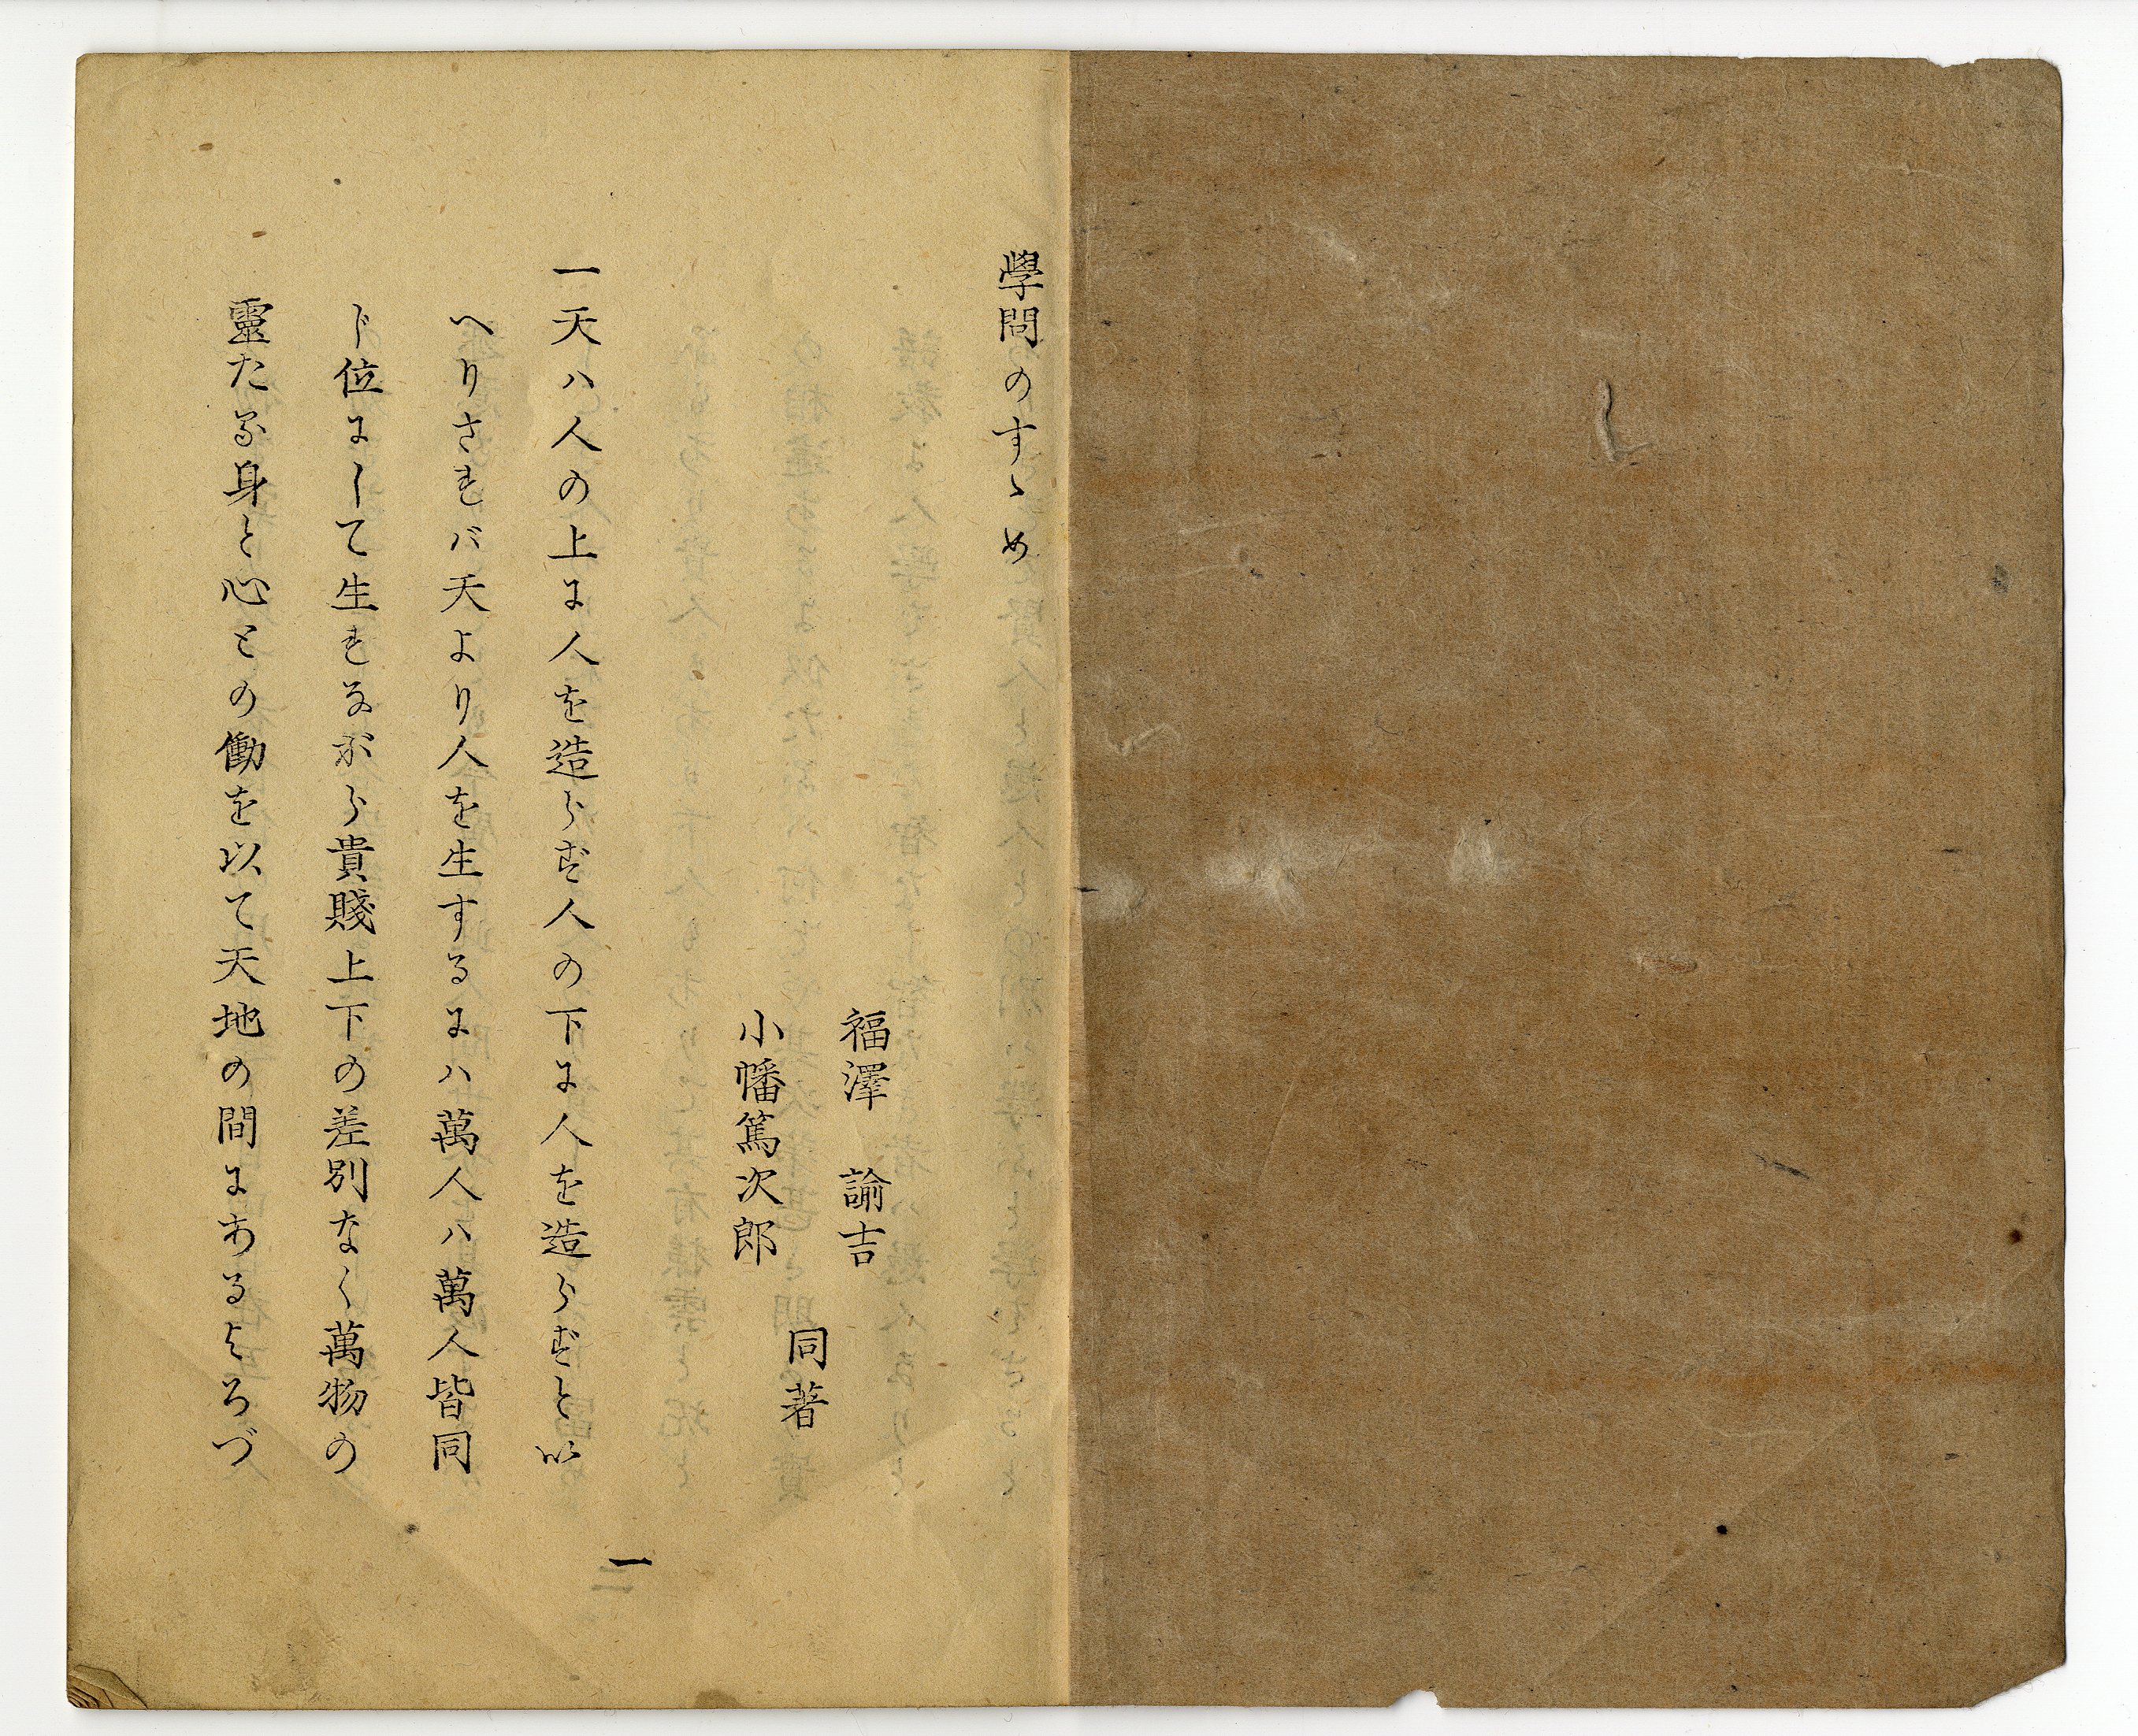 學問のすゝめ
福澤 諭吉
小幡篤次郎
同著
一天ハ人の上に人を造らず人の下に人を造らずと以
へりされバ天より人を生するにハ萬人ハ萬人皆同
じ位にして生れながら貴賤上下の差別なく萬物の
靈たる身と心との働を以て天地の間にあるよろづ
一